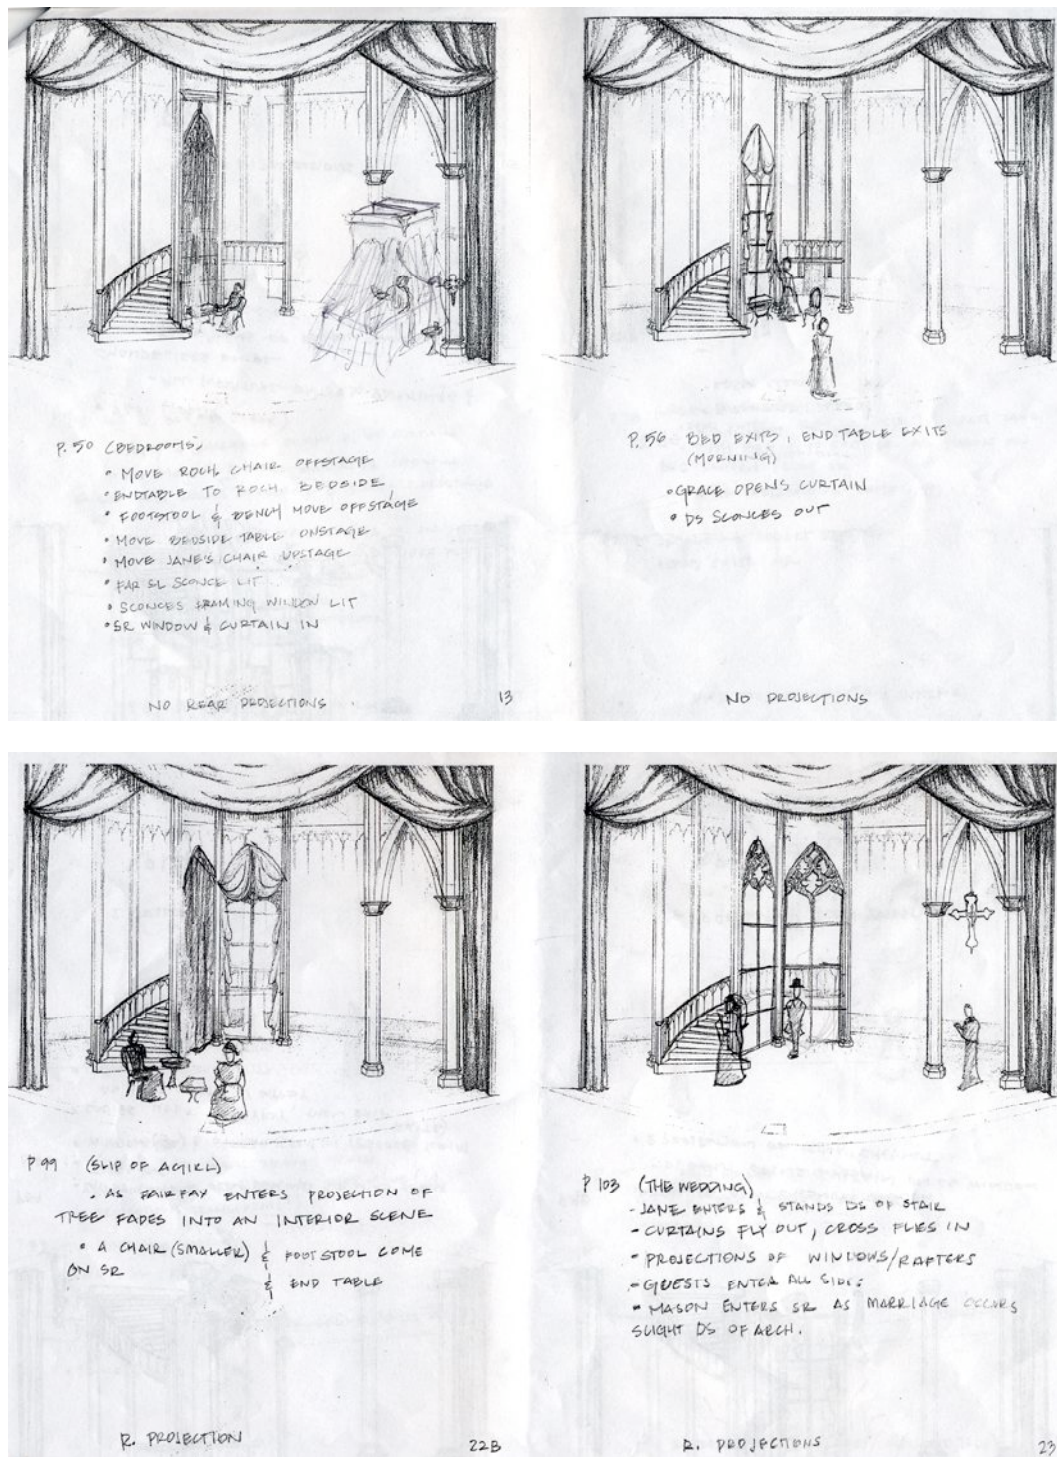 P. 50 (BEDROOMS)
• MOVE ROCH. CHAIR OFFSTAGE
• ENDTABLE TO ROCH. BEDSIDE
• FOOTSTOOL & BENCH MOVE OFFSTAGE
• MOVE BEDSIDE TABLE ONSTAGE
• MOVE JANE'S CHAIR UPSTAGE
• FAR SL SCONCE LIT
• SCONCES FRAMING WINDOW LIT
• SR WINDOW & CURTAIN IN
NO REAR PROJECTIONS
13
P. 56 BED EXITS, END TABLE EXITS
(MORNING)
• GRACE OPENS CURTAIN
• DS SCONCES OUT
NO PROJECTIONS
P 99 (SLIP OF A GIRL)
• AS FAIRFAX ENTERS PROJECTION OF
TREE FADES INTO AN INTERIOR SCENE
• A CHAIR (SMALLER) & FOOTSTOOL COME
ON SR & END TABLE
R. PROJECTION
22B
P 103 (THE WEDDING)
- JANE ENTERS & STANDS DS OF STAIR
- CURTAINS FLY OUT, CROSS FLIES IN
• PROJECTIONS OF WINDOWS/RAFTERS
- GUESTS ENTER ALL SIDES
• MASON ENTERS SR AS MARRIAGE OCCURS
SLIGHT DS OF ARCH.
R. PROJECTIONS
23